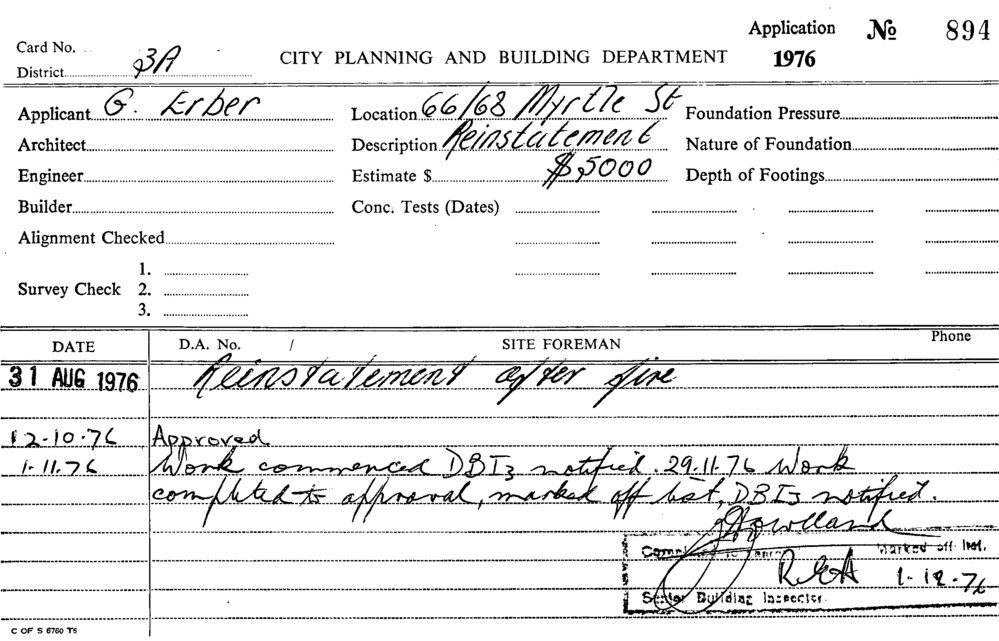 Application No 894
Card No.
District 3A CITY PLANNING AND BUILDING DEPARTMENT 1976
Applicant G. Erber Location 66/68 Myrtle St Foundation Pressure
Architect Description Reinstatement Nature of Foundation
Engineer Estimate $ $5000 Depth of Footings
Builder Conc. Tests (Dates)
Alignment Checked
1.
Survey Check 2.
3.
DATE D.A. No. / SITE FOREMAN Phone
31 AUG 1976 Reinstatement after fire
12-10-76 Approved
1-11-76 Work commenced DBI3 notified. 29.11.76 Work
completed to approval, marked off list, DBI3 notified.
Marked off list.
1-12-76
Senior Building Inspector.
C OF S 6760 T6